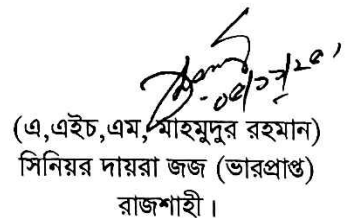 (এ,এইচ,এম, মাহমুদুর রহমান)
সিনিয়র দায়রা জজ (ভারপ্রাপ্ত)
রাজশাহী।